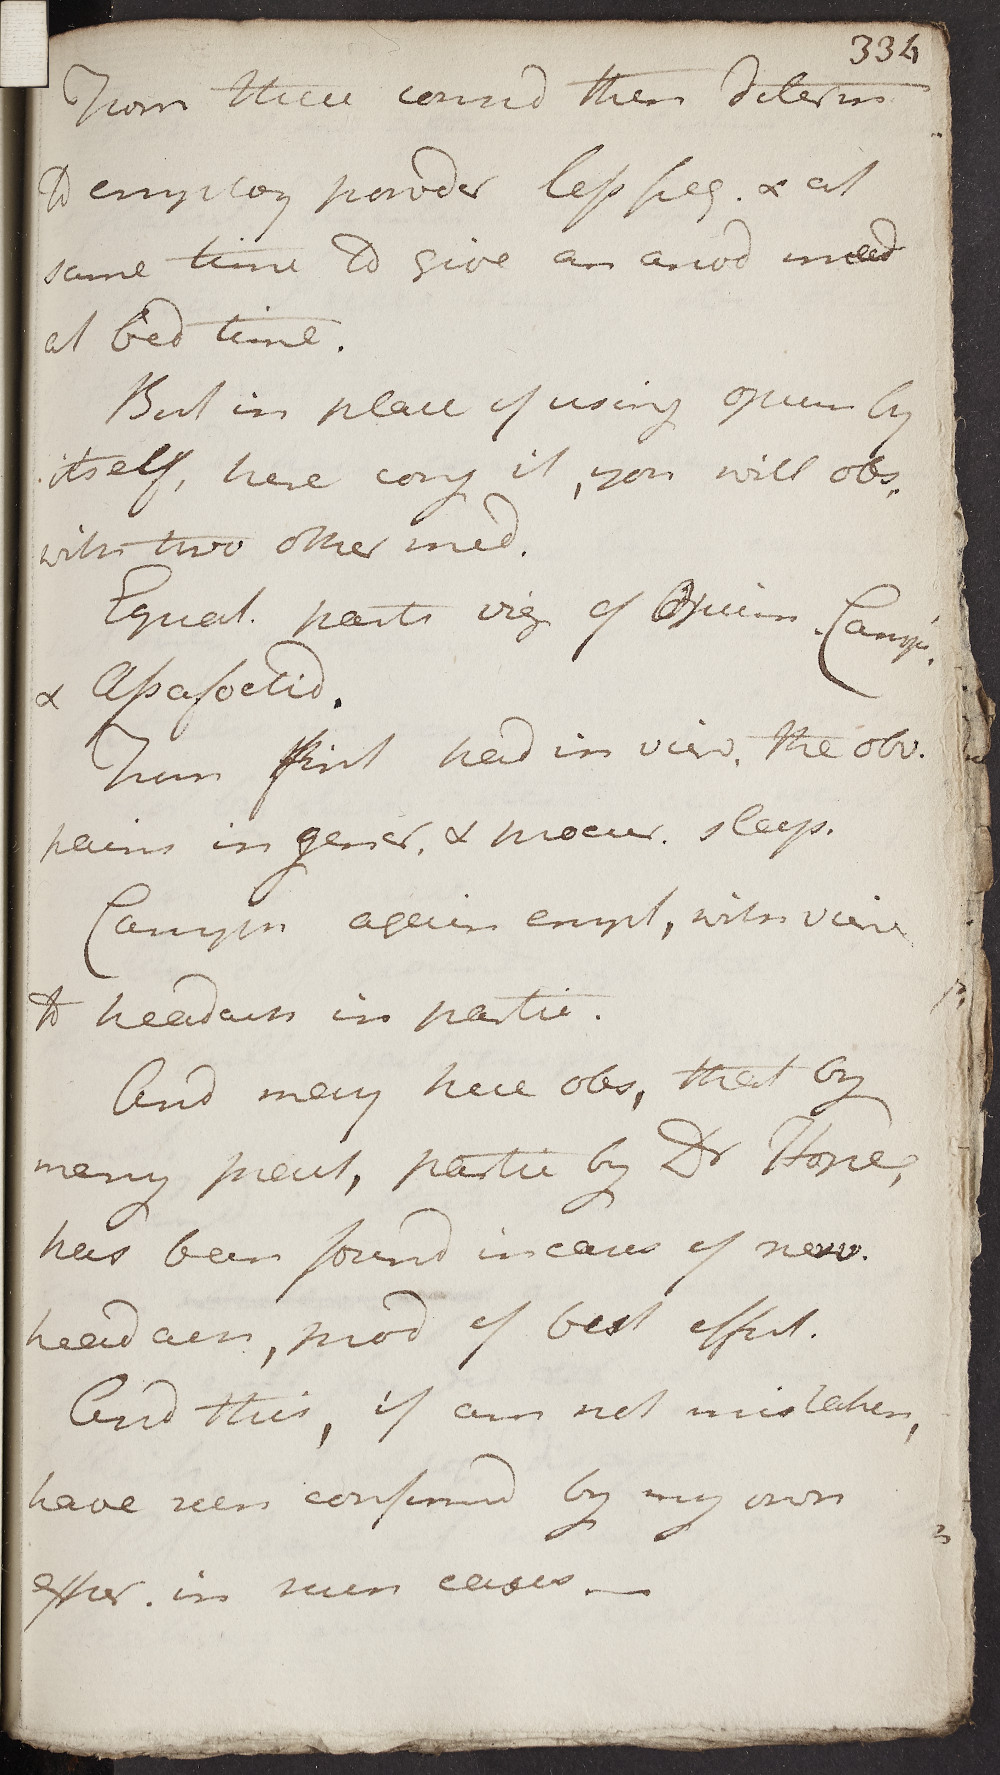 334
From these consid then determ
to employ powder less freq. & at
same time to give an anod med
at bed time.
But in place of using opium by
itself, here conj it, you will obs.
with two other med.
Equal. parts viz of Opium. Camph.
& Assafoetid.
From first had in view, the obv.
pains in gener. & procur. sleep.
Camph again empl, with view
to headach in partic.
And may here obs, that by
many pract, partic by Dr Home,
has been found in cases of nerv.
headach, prod of best effect.
And this, if am not mistaken,
have seen confirmd by my own
exper. in cases —